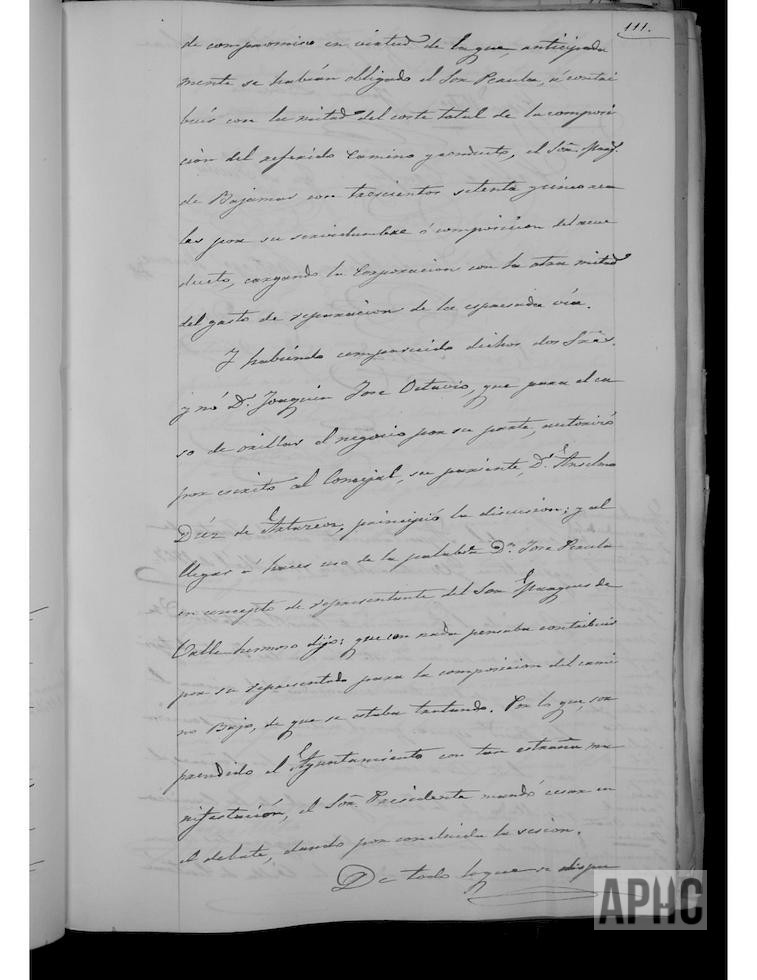 111.
de compromiso en virtud de la que, anticipada
mente se habian obligado el Sor. Peraba, á contri
buir con la mitad del coste total de la composi
cion del referido Camino y conducto, el Sor. Marq.
de Bajamar con trescientos setenta y cinco rea
les por su servidumbre ó composicion del acue
ducto, cargando la Corporacion con la otra mitad
del gasto de reparacion de la espresada via.
Y habiendo comparecido dichos dos Sres.
y nó Dn. Joaquin Jose Octavio, que para el ca
so de orillar el negocio por su parte, autorizó
por escrito al Concejal, su pariente, Dn. Anselmo
Diez de principió la discusion; y al
llegar á hacer uso de la palabra Dn. Jose
en concepto de representante del Sor. Marques de
Valle-hermoso dijo: que con nada pensaba contribuir
por su representado para la composicion del cami
no Bajo, de que se estaba tratando. Por lo que, sor
prendido el Ayuntamiento con tan estraña ma
nifestación, el Sor. Presidente mandó cesar en
el debate, dando por concluida la sesion.
De todo lo que se dispu
APHC